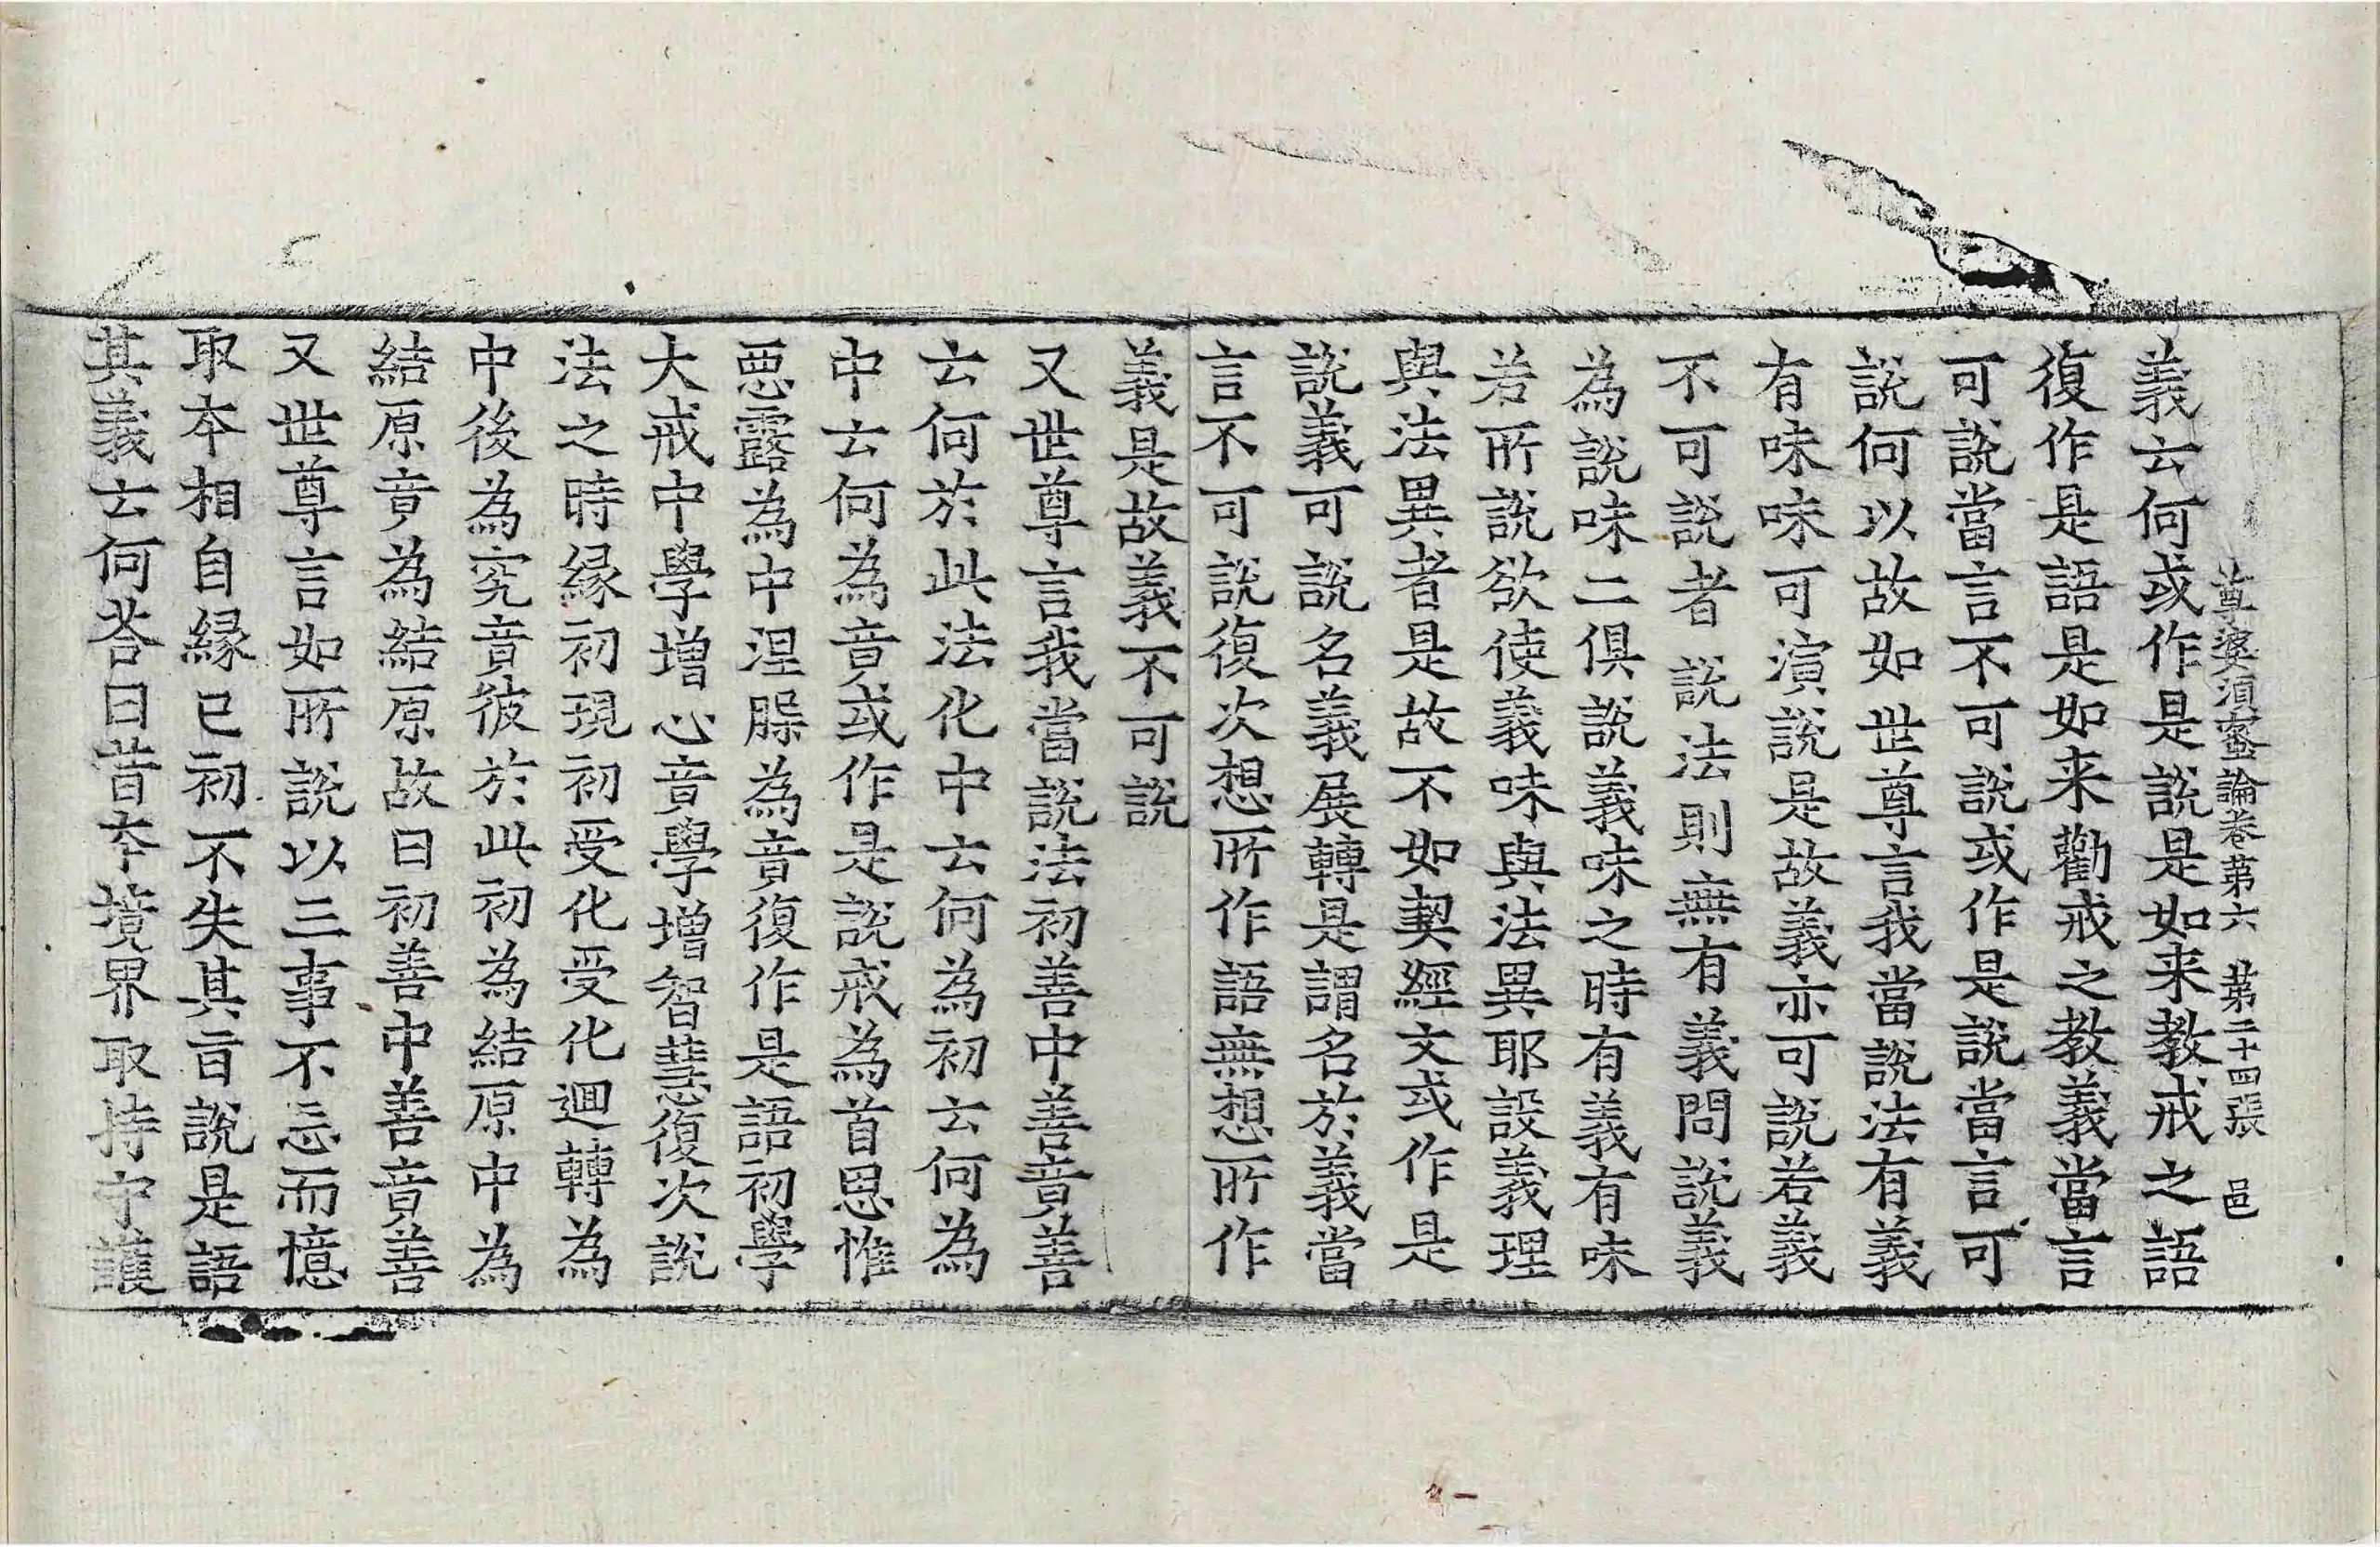 尊婆須蜜論卷第六 第二十四張 邑
義云何或作是說是如来教戒之語
復作是語是如来勸戒之教義當言
可說當言不可說或作是說當言可
說何以故如世尊言我當說法有義
有味味可演說是故義亦可說若義
不可說者說法則無有義問說義
為說味二俱說義味之時有義有味
若所說欲使義味與法異耶設義理
與法異者是故不如契經文或作是
說義可說名義展轉是謂名於義當
言不可說復次想所作語無想所作
義是故義不可說
又世尊言我當說法初善中善竟善
云何於此法化中云何為初云何為
中云何為竟或作是說戒為首思惟
惡露為中涅槃為竟復作是語初學
大戒中學增心竟學增智慧復次說
法之時緣初現初受化受化迴轉為
中後為究竟彼於此初為結原中為
結原竟為結原故曰初善中善竟善
又世尊言如所說以三事不忘而憶
取本相自緣已初不失其旨說是語
其義云何荅曰昔本境界取持守護